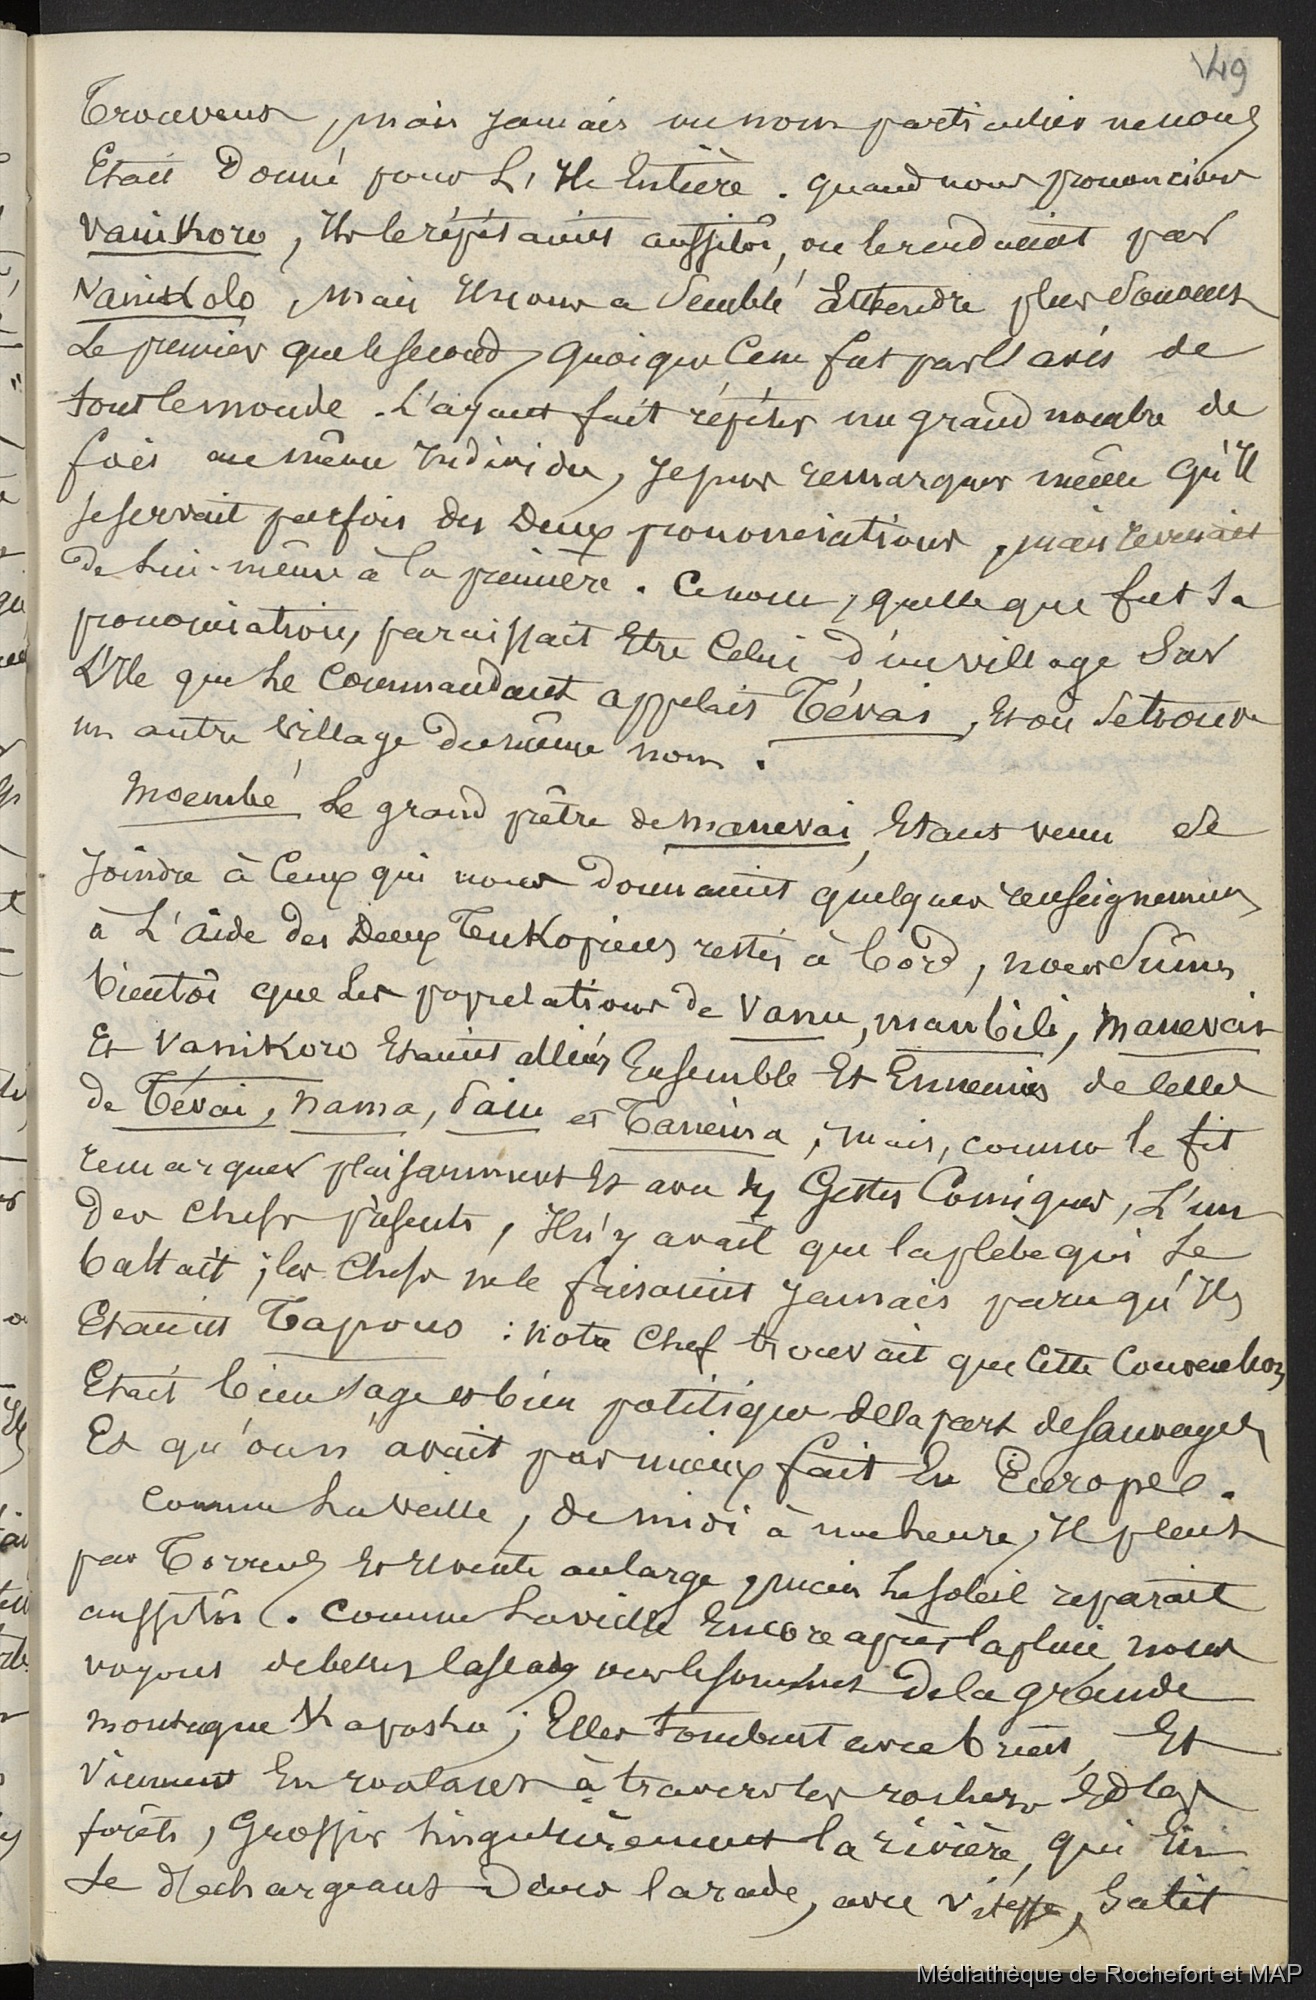 49
Trouvent, mais jamais un nom particulier ne nous
Etait Donné pour L'Ile Entière. quand nous prononcions
Vanikoro, Ils le répétaient aussitôt, ou le rendaient par
Vanikolo, mais Il nous a Semblé Entendre plus Souvent
Le premier que le second, quoique Ce ne fut pas l'avis de
tout le monde. L'ayant fait répéter un grand nombre de
fois au même Individu, Je pus remarquer même qu'Il
se servait parfois des Deux prononciations, mais revenait
de Lui-même à la première. Ce nom, quelle que fut Sa
prononciation, paraissait Etre Celui d'un village Sur
L'Ile que Le Commandant appelait Tévai, Et où Se trouve
un autre village du même nom.
Moembé, Le grand prêtre de manevai, Etant venu se
Joindre à Ceux qui nous Donnaient quelques renseignemens
à L'aide des Deux Tukopiens restés à bord, nous Sûmes
bientôt que Les populations de Vanu, manbili, Manevai
Et Vanikoro Etaient alliés Ensemble Et Ennemies de celles
de Tévai, nama, Saiu et Tanema, mais, comme le fit
remarquer plaisamment Et avec des Gestes Comiques, L'un
Des Chefs présents, Il n'y avait que la plèbe qui Se
battait; les Chefs ne le faisaient Jamais parce qu'Ils
Etaient Tapous : Notre Chef trouvait que Cette Convention
Etait bien sage et bien politique de la part de Sauvages
Et qu'on n'avait pas mieux fait En Europe.
Comme La veille, de midi à une heure, Il pleut
par Torrens Et Il vente au large, mais Le soleil reparaît
aussitôt. Comme La veille Encore après la pluie, nous
voyons de belles cascades vers le sommet De la grande
montagne Kapasho; Elles tombent avec bruit, Et
Viennent En roulant à travers les rochers Et les
forêts, Grossir Singulièrement la rivière, qui En
Se déchargeant Dans la rade, avec vitesse, Salit
Médiathèque de Rochefort et MAP